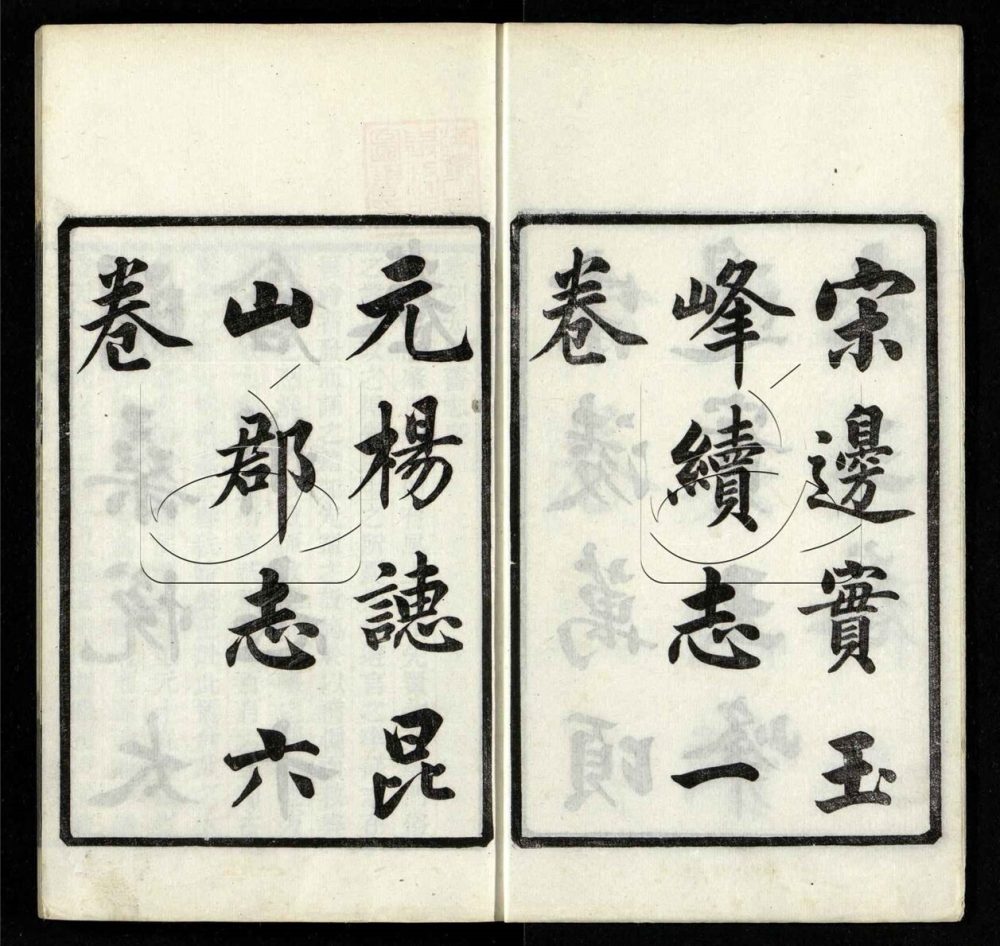 宋邊實玉
峰續志一
卷
元楊譓昆
山郡志六
卷